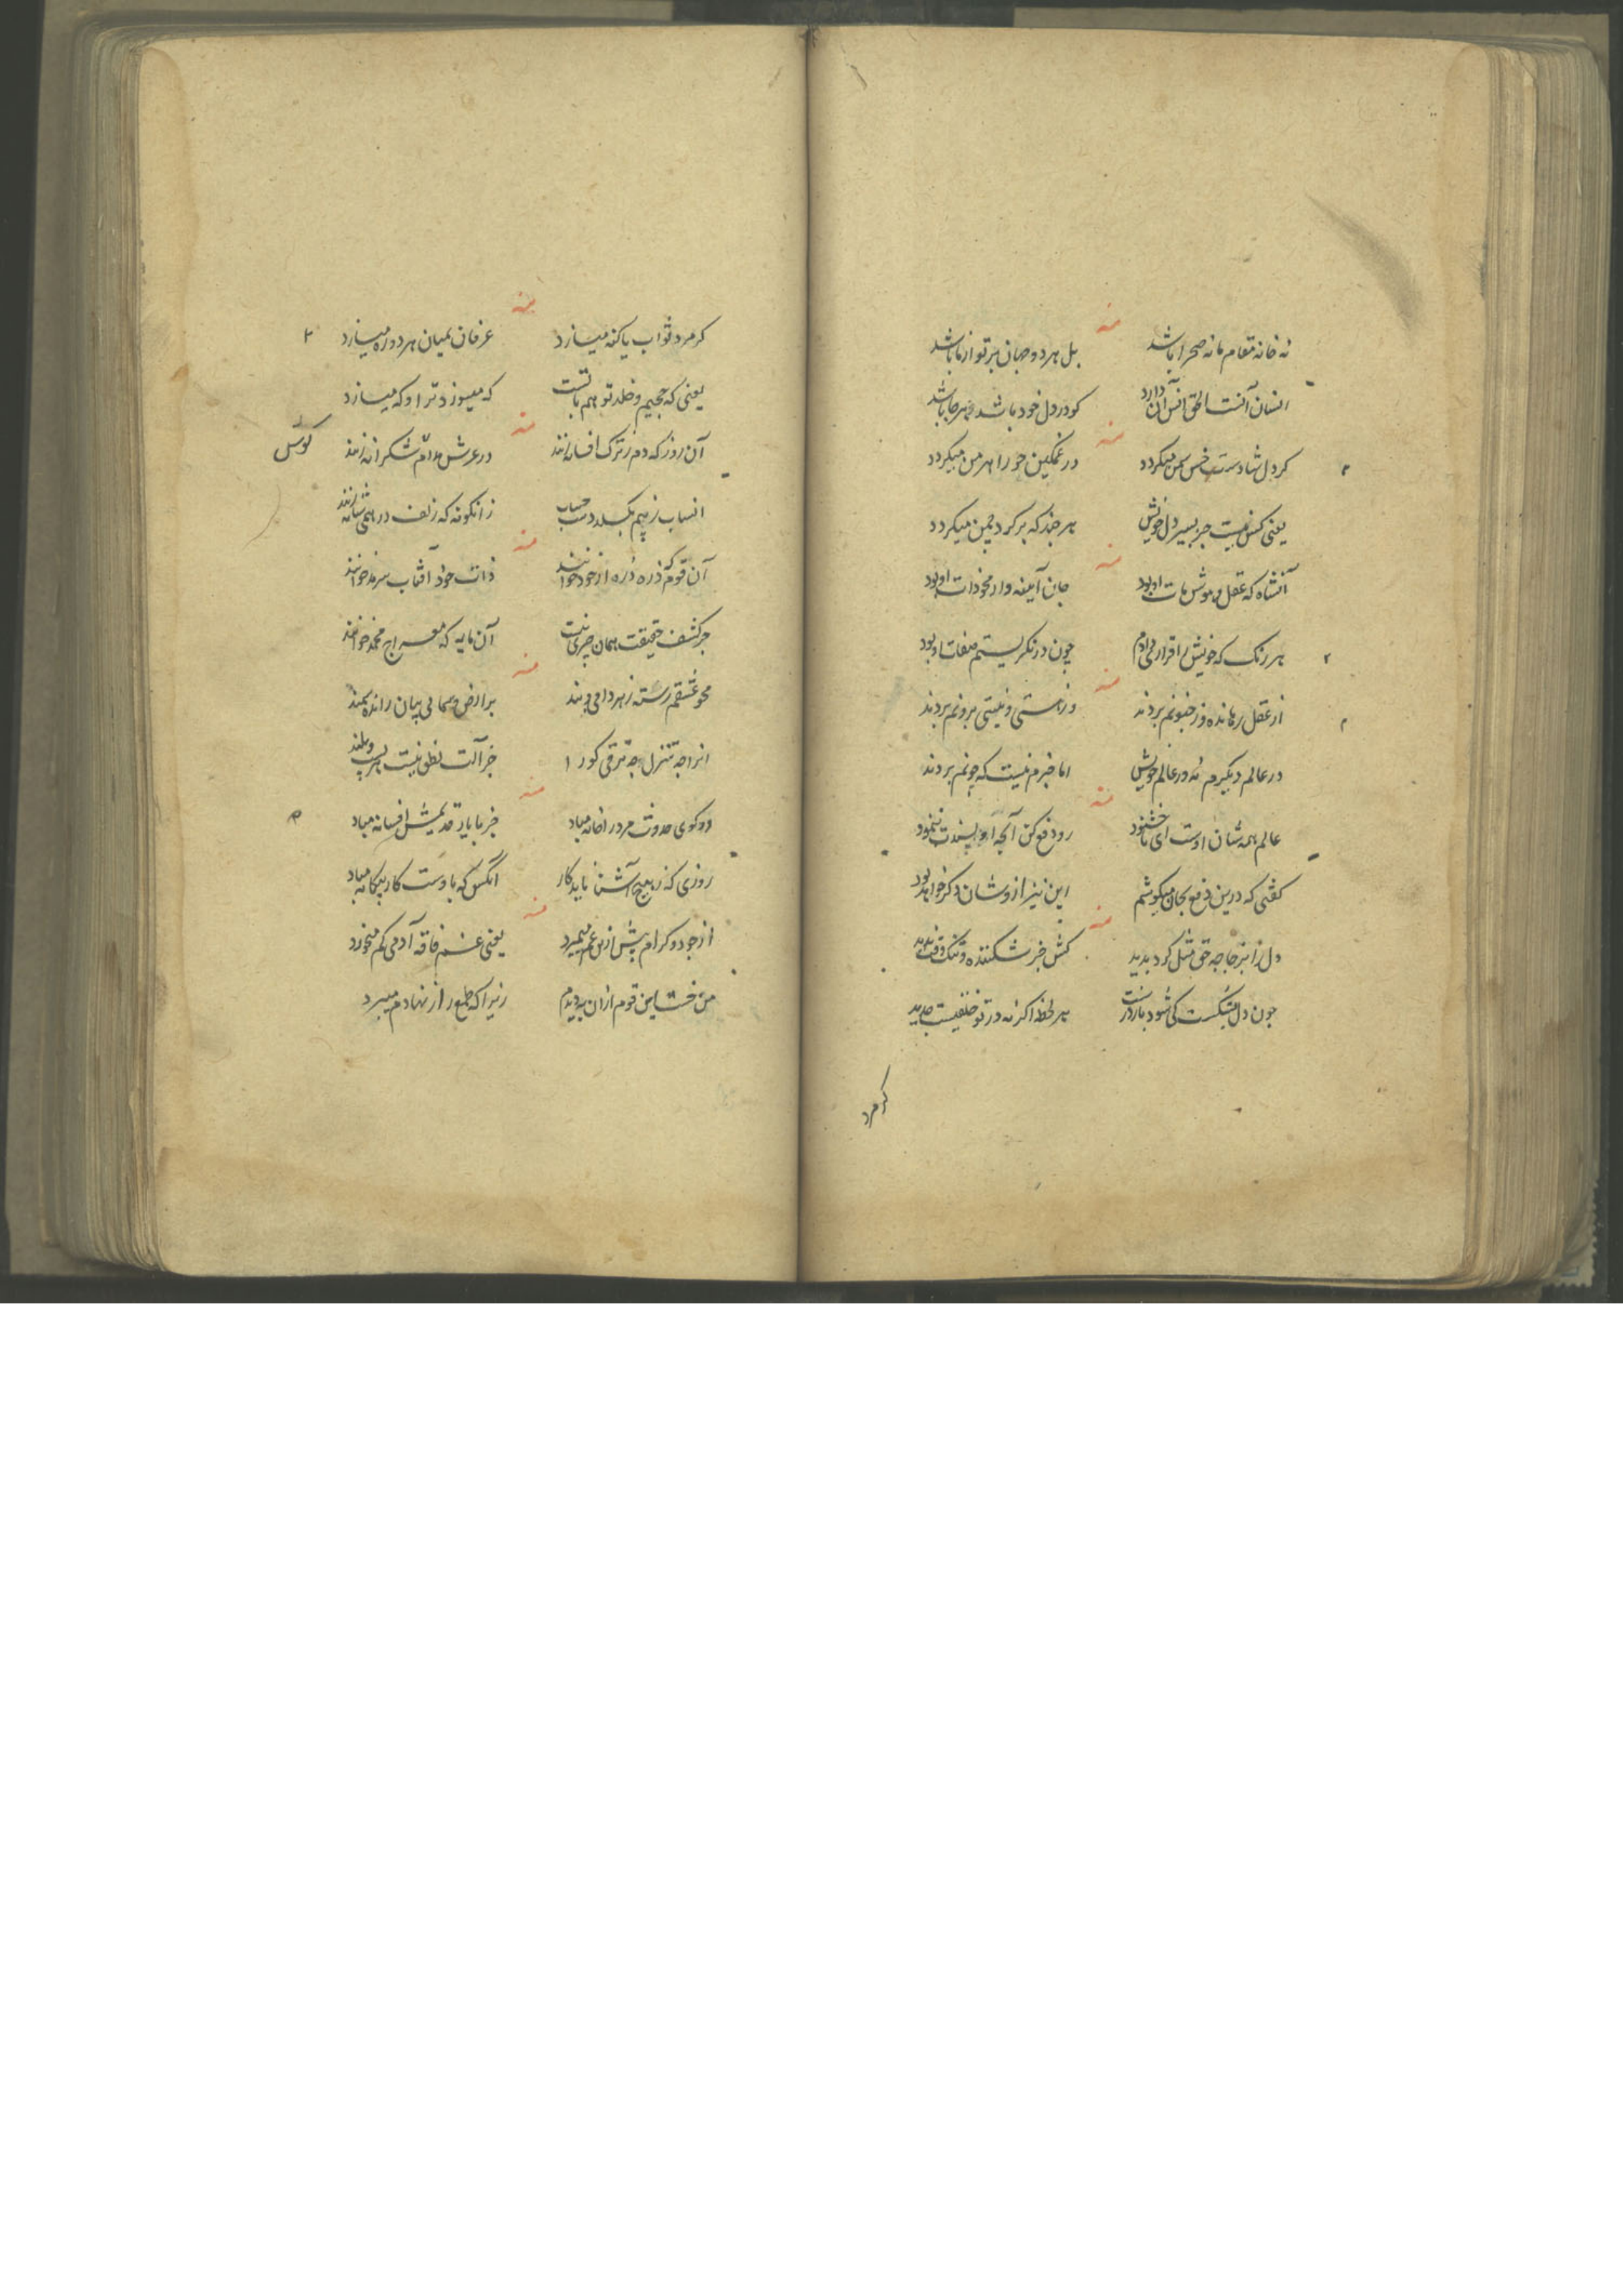 منه
نه خانه مقام ما نه صحرا باشد
بل هر دو جهان پرتو از ما باشد
انسان آنست الحق انس آن دارد
کو در دل خود باشد هر جا باشد
منه
کر دل شادست خس سمن میکردد
ور غمکین حور اهرمن میکردد
یعنی کس نیست جز بسیر دل خویش
هر چند که بر کرد چمن میکردد
منه
آنشاه که عقل و هوش مات او بود
جان آینه وار محو ذات او بود
هر رنک که خویش را قرار می دادم
چون در نکریستم صفات او بود
منه
از عقل رهانده وز جنونم بردند
وز هستی و نیستی برونم بردند
در عالم دیکرم نه در عالم خویش
اما خبرم نیست که چونم بردند
منه
عالم همه شان اوست ای ناخشنود
رو دفع کن آنچه او پسندت ننمود
کفتی که درین دفع بجان میکوشم
این نیز از وشان دکر خواهد بود
منه
دل را بزجاجه حق مثل کرد بدید
کش جز شکننده و تنک
چون دل بشکست کی شود باز درست
هر لحظه اکر نه در تو خلقیست جدید
کرمرد
منه
کر مرد ثواب یا کنه میسازد
عرفان بمیان هر دو ره میسازد
یعنی که جحیم و خلد تو هم با تست
که میسوزد ترا و که میسازد
منه
آن روز که دم ز ترک افسانه زنند
در عرش دم شکرانه زنند
کوس
انساب ز هم بکسلد حساب
زانکونه که زلف در همی شانه زنند
منه
آن قوم که ذره ذره از خود خوانند
ذات خود آفتاب سرمد خوانند
جز کشف حقیقت همان چیزی نیست
آن مایه که معراج محمد خوانند
منه
محو عشقم رسته ز هر دامی و بند
بر ارض و سما بی پیمان رانده سمند
انرا چه تنزل چه ترقی کورا
جز آلت نطق نیست پست و بلند
منه
در کوی حدوث مرد را خانه مباد
جز با یار قدیمش افسانه مباد
روزی که ز هیچ آشنا ناید کار
انکس که با وست کار بیکانه مباد
منه
از جود و کرام پیش ازین غم میبرد
یعنی غم فاقه آدمی کم میخورد
من خست این قوم ازان به دیدم
زیرا که طمع را از نهادم میبرد